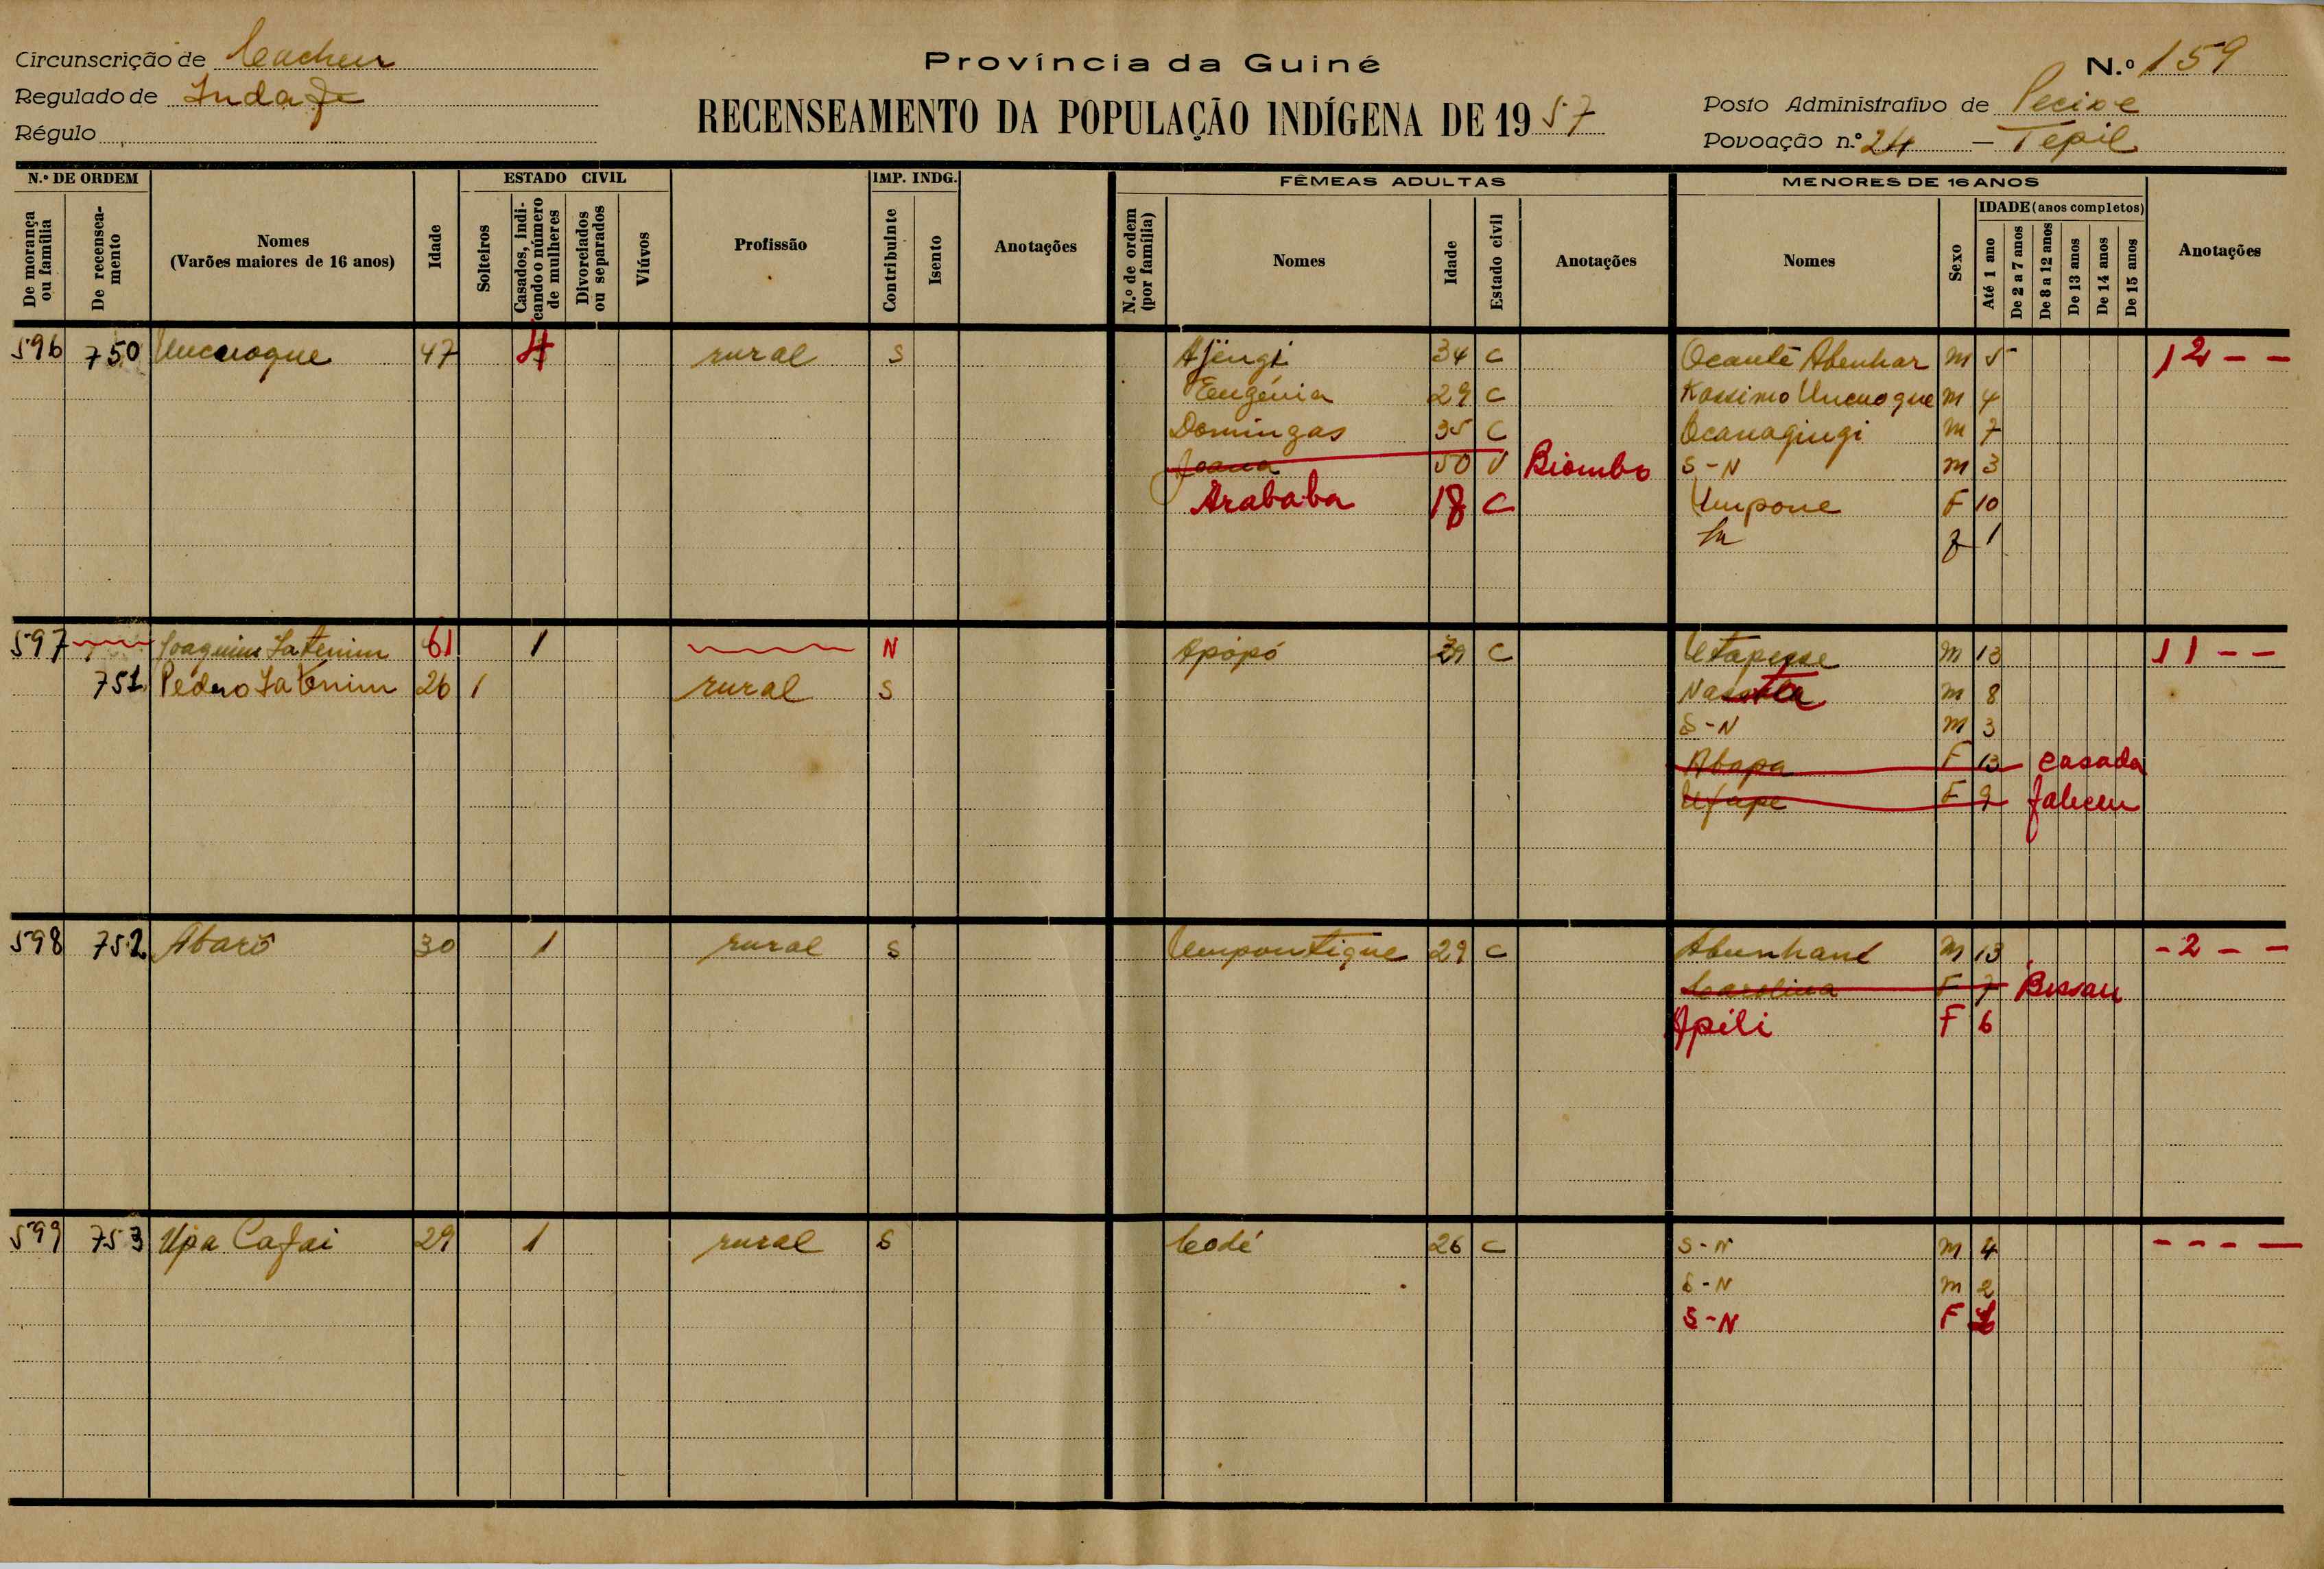 Circunscrição de Cacheu
Regulado de Indafe
Régulo
Província da Guiné
RECENSEAMENTO DA POPULAÇÃO INDÍGENA DE 1957
N.º 159
Posto Administrativo de Pecixe
Povoação n.º 24 - Tepil
N.º DE ORDEM
De morança ou família
De recenseamento
Nomes
(Varões maiores de 16 anos)
Idade
ESTADO CIVIL
Solteiros
Casados, indicando o número de mulheres
Divorciados ou separados
Viúvos
Profissão
IMP. INDG.
Contribuinte
Isento
Anotações
FÊMEAS ADULTAS
N.º de ordem (por família)
Nomes
Idade
Estado civil
Anotações
MENORES DE 16 ANOS
Nomes
Sexo
IDADE (anos completos)
Até 1 ano
De 2 a 7 anos
De 8 a 12 anos
De 13 anos
De 14 anos
De 15 anos
Anotações
596 750 Uncuoque 47 4 rural S Ajingi 34 C Ocantê Abenhar M 5 12 - -
Eugénia 29 C Kassimo Uncuoque M 4
Domingas 35 C Ocanagingi M 7
Joana 50 V Biombo S-N M 3
Arababa 18 C Umpone F 10
Sn f 1
597 Joaquim Satenim 61 1 N Apópó C Utapesse M 13 11 - -
751 Pedro Satenim 26 1 rural S M 8
S-N M 3
Abapa F 13 casada
Ufape F 9 faleceu
598 752 Abarô 30 1 rural S Umpontique 29 C Abunhané M 13 - 2 - -
Carolina F 7 Bissau
Apili F 6
599 753 Upa Cafai 29 1 rural S Codé 26 C S-N M 4 - - - -
S-N M 2
S-N F